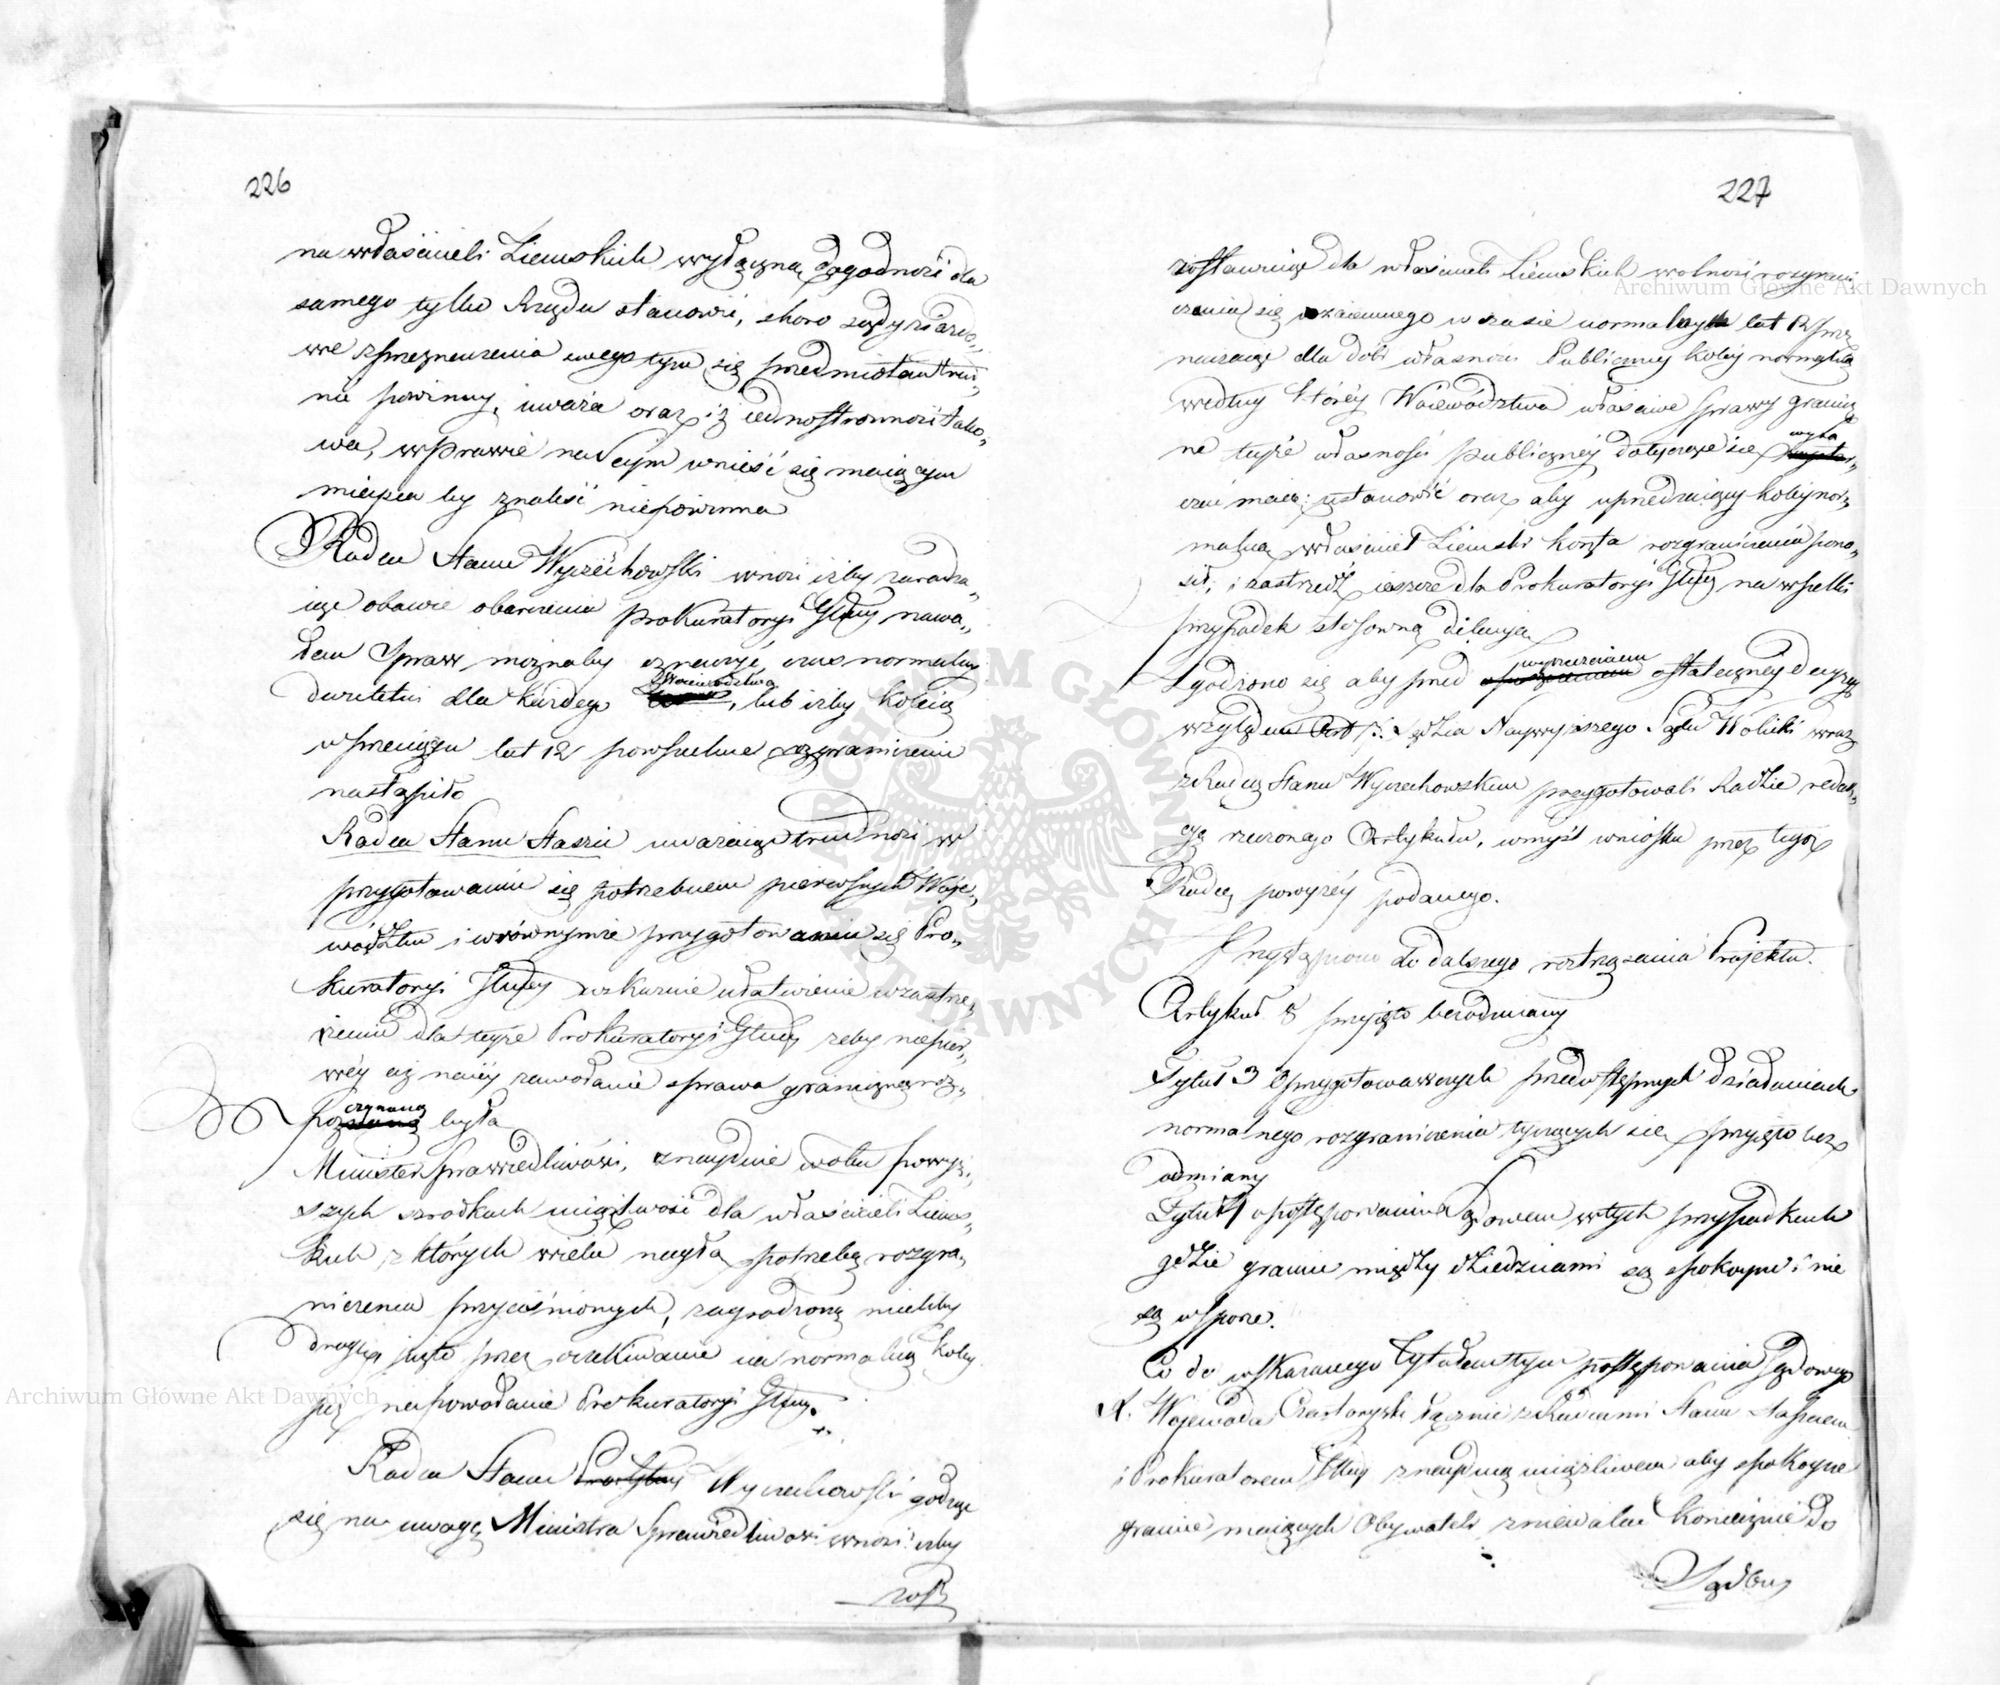 226
na właścicieli Ziemskich wyłączną dogodność dla
samego tylko Rządu stanowić, skoro sądy ziazdo„
we z przeznaczenia swego tym się przedmiotem trud„
nić powinny, uważa oraz iż jednostronność tako„
wa, w prawie na czym wnieść się maiącym
mieysca by znaleść niepowinna
Radca Stanu Wyczechowski wnosi iżby zaradza„
iąc obawie obarczenia Prokuratoryi Głney nawa„
łem Spraw, możnaby oznaczyć, czas normalny
dwuletni dla każdego Województwa, lub iżby koleią
w przeciągu lat 12 powszechne rozgraniczenie
nastąpiło
Radca Stanu Staszic uważaiąc trudność w
przygotowaniu się potrzebnem pierwszych Woje„
wództw i w równymże przygotowaniu się Pro„
kuratoryi Głney wskazuie ułatwienie w zastrze„
żeniu dla teyże Prokuratoryi Głney żeby niepier„
wéy aż na iéy zawołanie sprawa graniczna roz„
poczynaną była
Minister Sprawiedliwości, znayduie w obu powyż„
szych srodkach uciążliwość dla właścicieli Ziems„
kich z których wielu nagłą potrzebą rozgra„
niczenia przyciśnionych, zagrodzoną mieliby
drogę iuż to przez oczekiwanie na normalną koley
już na powołanie Prokuratoryi Głney.
Radca Stanu Wyczechowski godząc
się na uwagę Ministra Sprawiedliwości wnosi iżby
zosta
227
zostawuiąc dla właścicieli Ziemskich wolność rozgrani
czenia się wzaiemnego w czasie normalnych lat 12 prze
naczaiąc dla dóbr własności Publiczney koley normalną
według któréy Woiewództwa właściwe sprawy granicz
ne teyże własności publicznéy dotyczące się wyta
czać maią; ustanowić oraz aby uprzedzaiący koley nor„
malną właściciel Ziemski koszta rozgraniczenia pono„
sił; i zastrzedz ieszcze dla Prokuratoryi Głney na wszelki
przypadek stosowną dilacyą
Zgodzono się aby przed wyrzeczeniem ostateczney decyzyi
względem Art 7. Sędzia Naywyższego Sądu Wolicki wraz
z Radcą Stanu Wyczechowskim przygotowali Radzie redak„
cyą rzeczonego Artykułu, w myśl wniosku przez tegoż
Radcę powyżéy podanego.
Przystąpiono do dalszego roztrząsania Projektu.
Artykuł 8 przyięto bez odmiany
Tytuł 3 o przygotowawczych przedwstępnych działaniach
normalnego rozgraniczenia tyczących się, przyięto bez
odmiany
Tytuł 4 o postępowaniu Sądowem w tych przypadkach
gdzie granice między dziedzicami są spokoyne i nie
są w sporze.
Co do wskazanego Tytułem tym postępowania Sądowego
X. Woiewoda Czartoryski łącznie z Radcami Stanu Staszicem
i Prokuratorem Głnym znayduią uciążliwem aby spokoyne
granice maiących Obywateli zniewalać koniecznie do
Sądowey